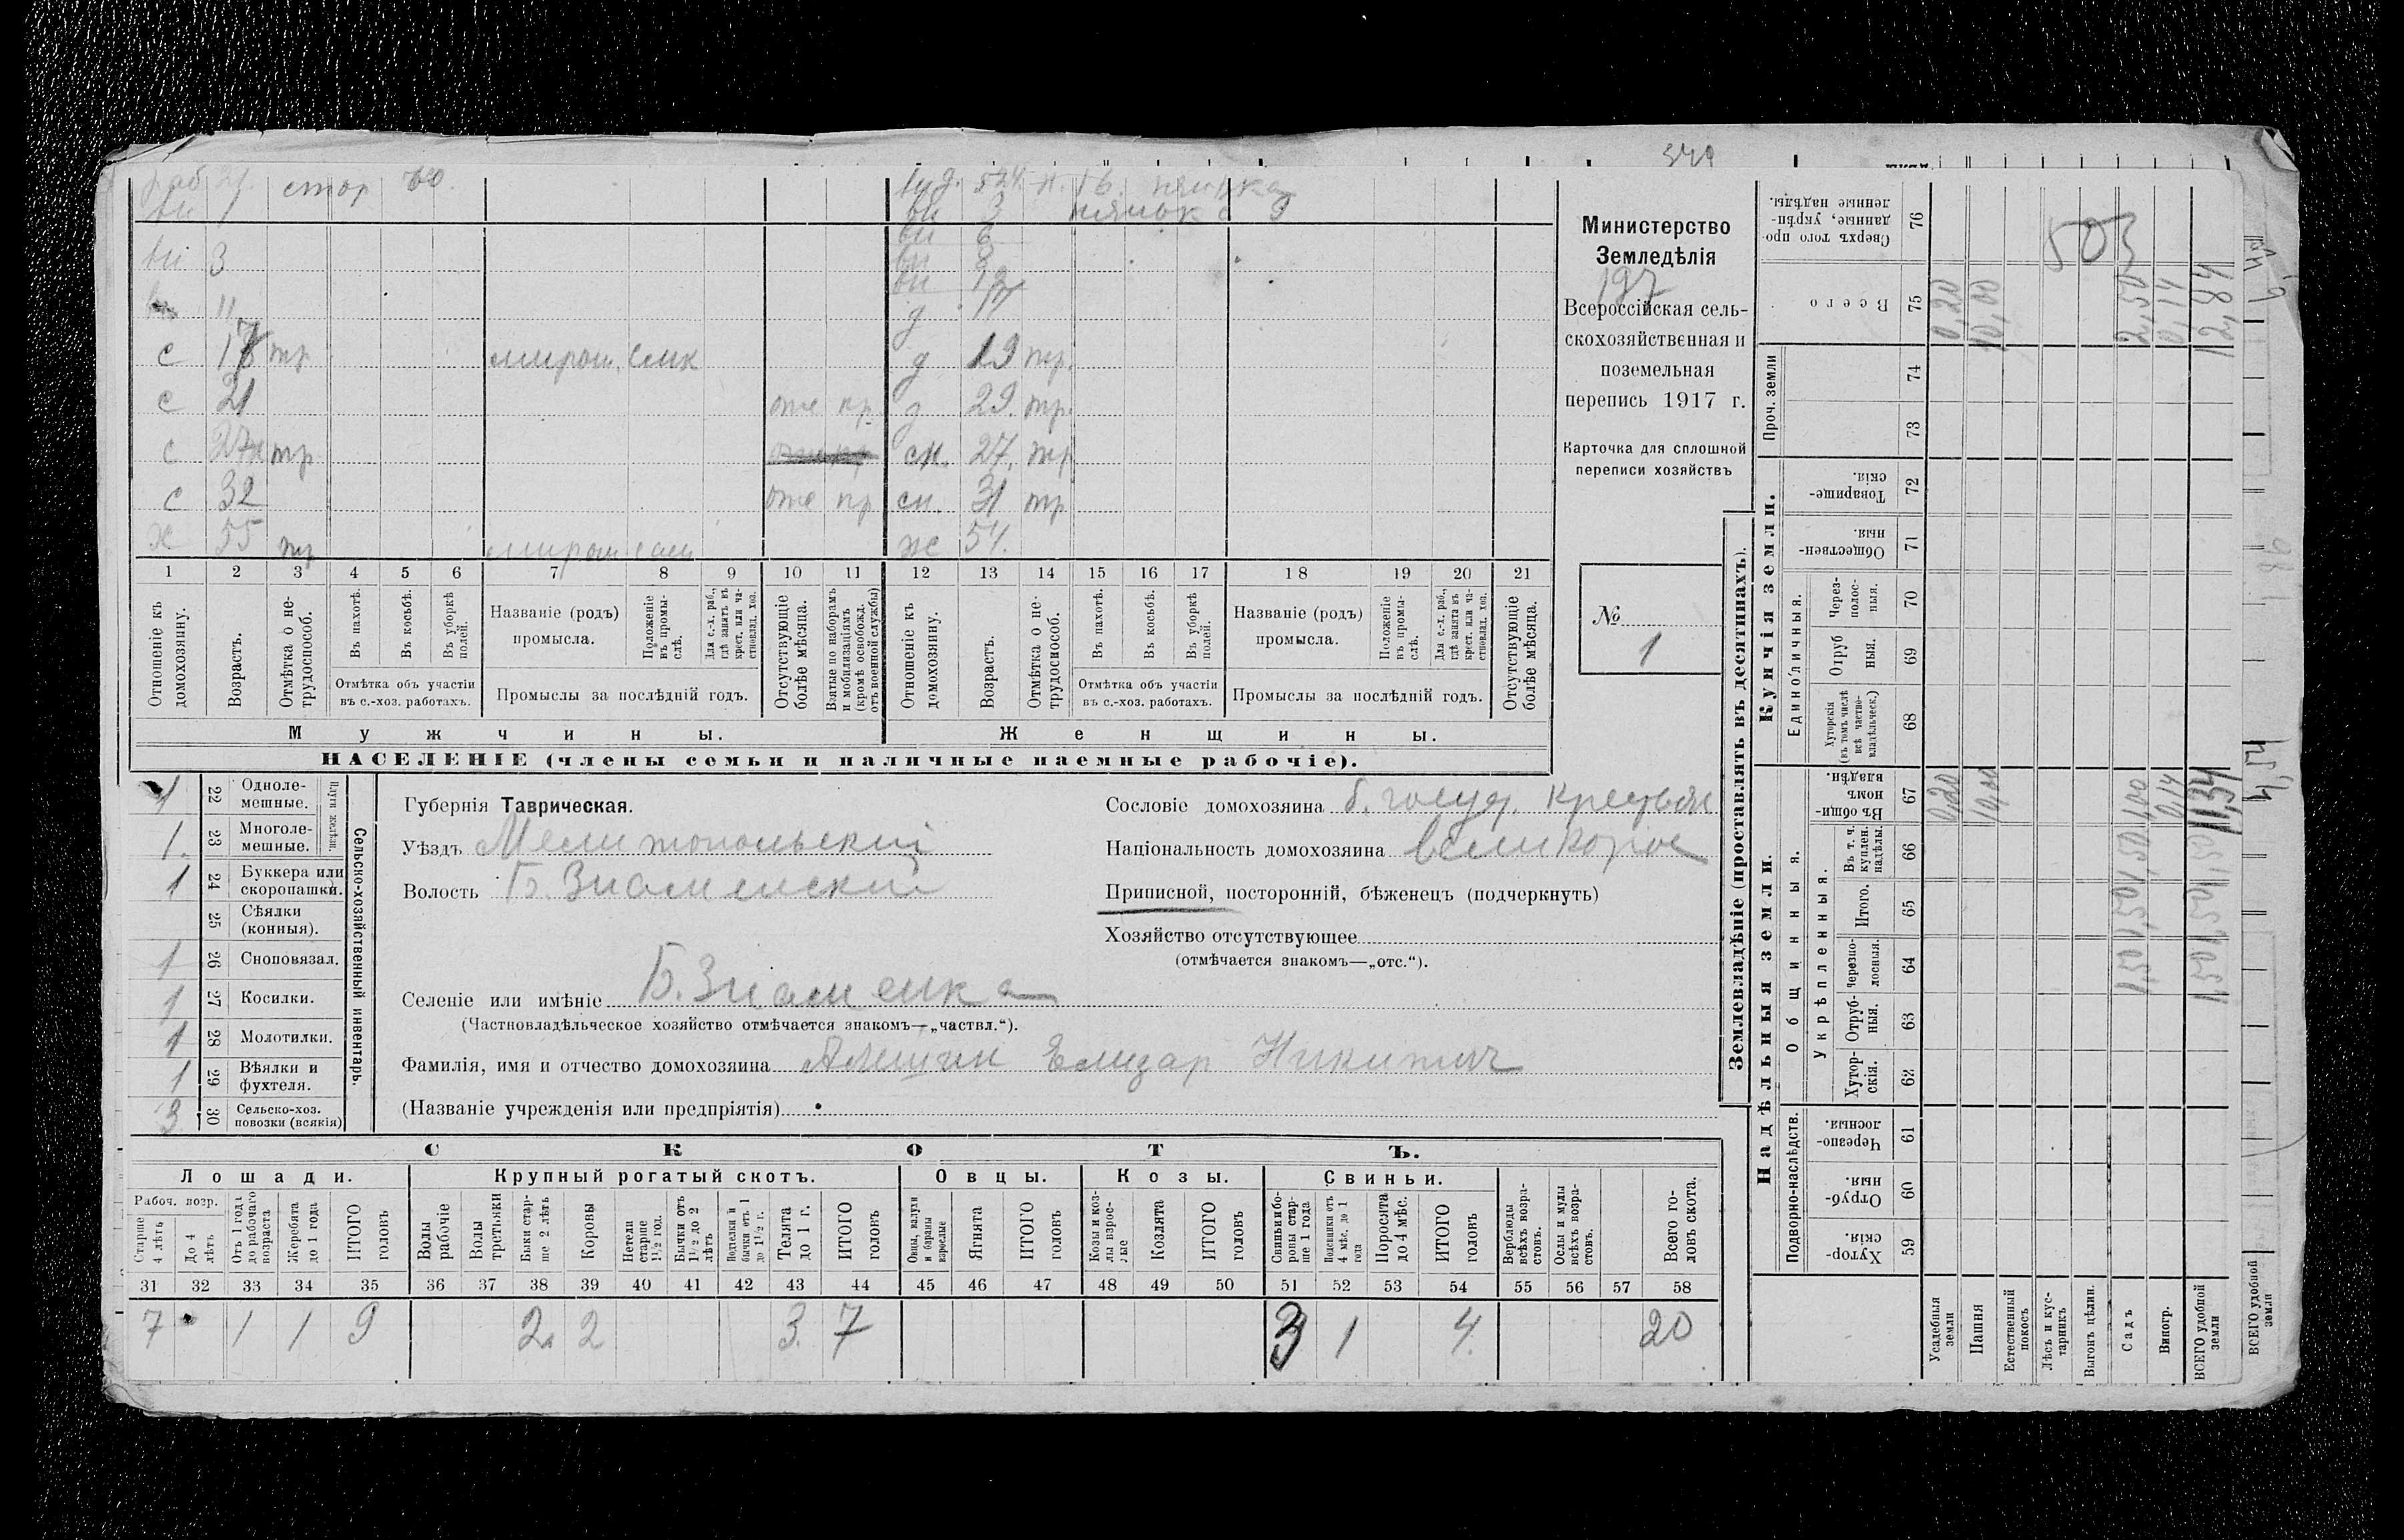 349
раб 21. стор 60.
вн 1
вн 3
11
с 17 тр мирош. смк
с 21 оте пр
с 27 тр
с 32 оте пр
х 55 тр мирош сам
1 2 3 4 5 6 7 8 9 10 11
Отношеніе къ домохозяину.
Возрастъ.
Отмѣтка о нетрудоспособ.
Въ пахотѣ.
Въ косьбѣ.
Въ уборкѣ полей.
Отмѣтка объ участіи въ с.-хоз. работахъ.
Названіе (родъ) промысла.
Положеніе въ промыслѣ.
Для с.-х. раб., гдѣ занятъ въ крест. или частновлад. хоз.
Промыслы за послѣдній годъ.
Отсутствующіе болѣе мѣсяца.
Взятые по наборамъ и мобилизаціямъ (кромѣ освобожд. отъ военной службы)
Мужчины.
нянька
вн 3 нянька
вн 6
вн 8
вн 12
д 17
д 19 тр.
д 29. тр.
сн. 27. тр
сн. 31 тр
же 54.
12 13 14 15 16 17 18 19 20 21
Отношеніе къ домохозяину.
Возрастъ.
Отмѣтка о нетрудоспособ.
Въ пахотѣ.
Въ косьбѣ.
Въ уборкѣ полей.
Отмѣтка объ участіи въ с.-хоз. работахъ.
Названіе (родъ) промысла.
Положеніе въ промыслѣ.
Для с.-х. раб., гдѣ занята въ крест. или частновлад. хоз.
Промыслы за послѣдній годъ.
Отсутствующіе болѣе мѣсяца.
Женщины.
НАСЕЛЕНІЕ (члены семьи и наличные наемные рабочіе).
Министерство
Земледѣлія
197
Всероссійская сель-
скохозяйственная и
поземельная
перепись 1917 г.
Карточка для сплошной
переписи хозяйствъ
№
1
Сельско-хозяйственный инвентарь.
Плуги желѣзн.
1 22 Одноле-
мешные.
1. 23 Многоле-
мешные.
1 24 Буккера или
скоропашки.
25 Сѣялки
(конныя).
1 26 Сноповязал.
1 27 Косилки.
1 28 Молотилки.
1 29 Вѣялки и
фухтеля.
3 30 Сельско-хоз.
повозки (всякія)
Губернія Таврическая.
Уѣздъ Мелитопольский
Волость Б. Знаменский
Селеніе или имѣніе Б. Знаменка
(Частновладѣльческое хозяйство отмѣчается знакомъ—„частвл.“).
Фамилія, имя и отчество домохозяина Алешин Елизар Никитич
(Названіе учрежденія или предпріятія)
Сословіе домохозяина б. госуд. крестьян
Національность домохозяина великорос
Приписной, посторонній, бѣженецъ (подчеркнуть)
Хозяйство отсутствующее
(отмѣчается знакомъ—„отс.“).
СКОТЪ.
Лошади. Крупный рогатый скотъ. Овцы. Козы. Свиньи.
Рабоч. возр.
Старше 4 лѣтъ
До 4 лѣтъ
Отъ 1 года до рабочаго возраста
Жеребята до 1 года
ИТОГО головъ
Волы рабочіе
Волы третьяки
Быки старше 2 лѣтъ
Коровы
Нетели старше 1½ год.
Бычки отъ 1½ до 2 лѣтъ
Подтелки и бычки отъ 1 до 1½ г.
Телята до 1 г.
ИТОГО головъ
Овцы, валухи и бараны взрослые
Ягнята
ИТОГО головъ
Козы и козлы взрослые
Козлята
ИТОГО головъ
Свиньи и боровы старше 1 года
Подсвинки отъ 4 мѣс. до 1 года
Поросята до 4 мѣс.
ИТОГО головъ
Верблюды всѣхъ возрастовъ.
Ослы и мулы всѣхъ возрастовъ.
Всего головъ скота.
31 32 33 34 35 36 37 38 39 40 41 42 43 44 45 46 47 48 49 50 51 52 53 54 55 56 57 58
7 1 1 9 2 2 3. 7 3 1 4. 20
Землевладѣніе (проставлять въ десятинахъ).
Надѣльныя земли.
Купчія земли.
Проч. земли
Подворно-наслѣдств.
Общинныя.
Укрѣпленныя.
Единоличныя.
Хуторскія. 59
Отрубныя. 60
Черезполосныя. 61
Хуторскія. 62
Отрубныя. 63
Черезполосныя. 64
Итого. 65
Въ т. ч. куплен. надѣлы. 66
Въ общинномъ владѣн. 67
Хуторскія (въ томъ числѣ всѣ частновладѣльческ.) 68
Отрубныя. 69
Черезполосныя. 70
Общественныя. 71
Товарищескія. 72
73
74
Всего 75
Сверхъ того проданные, укрѣпленные надѣлы. 76
Усадебныя земли 0,20 0,20
Пашня 10,00 10,00
Естественный покосъ
Лѣсъ и кустарникъ
Выгонъ цѣлин.
Садъ 1,50 1,50 1,50 1,00 2,50
Виногр. 0,14 0,14
ВСЕГО удобной земли 1,50 1,50 1,50 11,34 12,84
503
ВСЕГО удобной земли